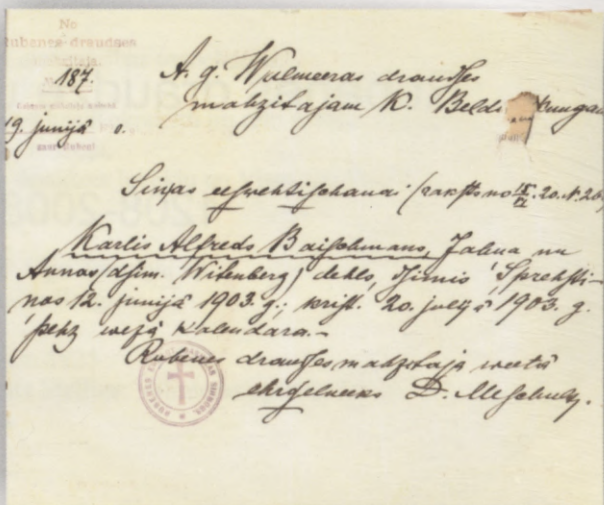 No
Rubenes draudses
187.
19. junijā
A. g. Wulmeeras draudses
mahzitajam K. Beld kungam
Siņas eeswehtischanai (raksts no 15/VI. 20. N. 26)
Karlis Alfreds Baischmans, Jahna un
Annas (dsim. Witenberg) dehls, dsimis Sprehsti-
nos 12. junijā 1903. g.; krist. 20. julijā 1903. g.
pehz wezā kalendara.-
Rubenes draudses mahzitaja weetā
ehrģelneeks D.